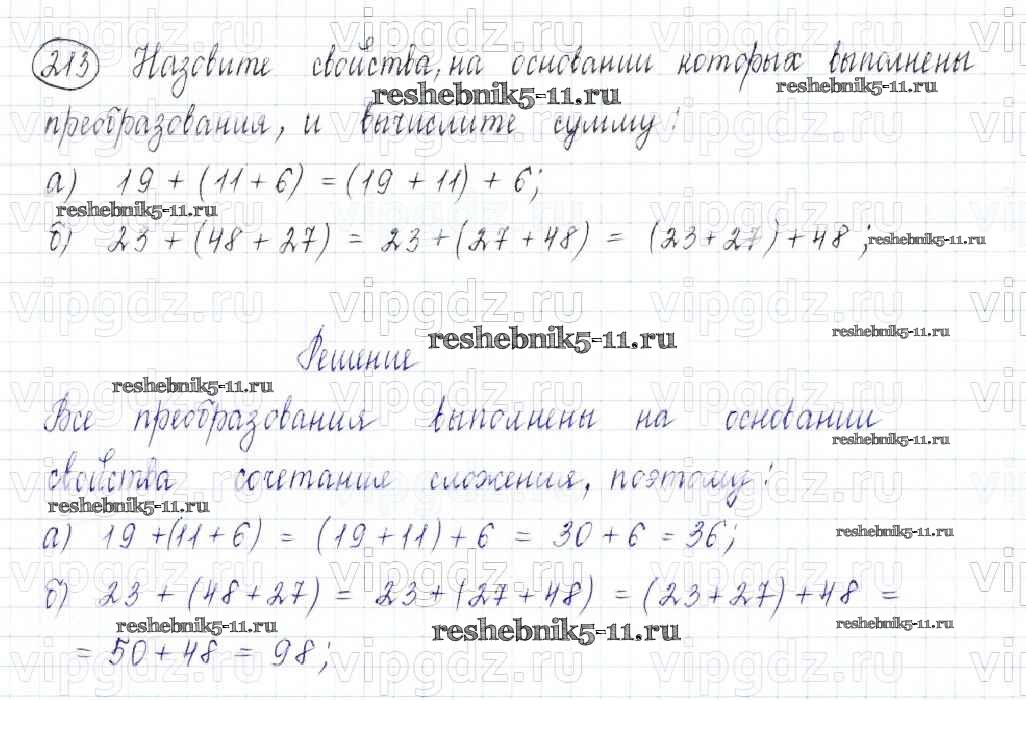 213 Назовите свойства, на основании которых выполнены
reshebnik5-11.ru reshebnik5-11.ru
преобразования, и вычислите сумму:
а) 19 + (11 + 6) = (19 + 11) + 6;
reshebnik5-11.ru
б) 23 + (48 + 27) = 23 + (27 + 48) = (23 + 27) + 48; reshebnik5-11.ru
vipgdz.ru vipgdz.ru vipgdz.ru
Решение reshebnik5-11.ru reshebnik5-11.ru
reshebnik5-11.ru
Все преобразования выполнены на основании
reshebnik5-11.ru
свойства сочетания сложения, поэтому:
reshebnik5-11.ru
а) 19 + (11 + 6) = (19 + 11) + 6 = 30 + 6 = 36; reshebnik5-11.ru
б) 23 + (48 + 27) = 23 + (27 + 48) = (23 + 27) + 48 =
reshebnik5-11.ru reshebnik5-11.ru reshebnik5-11.ru
= 50 + 48 = 98;